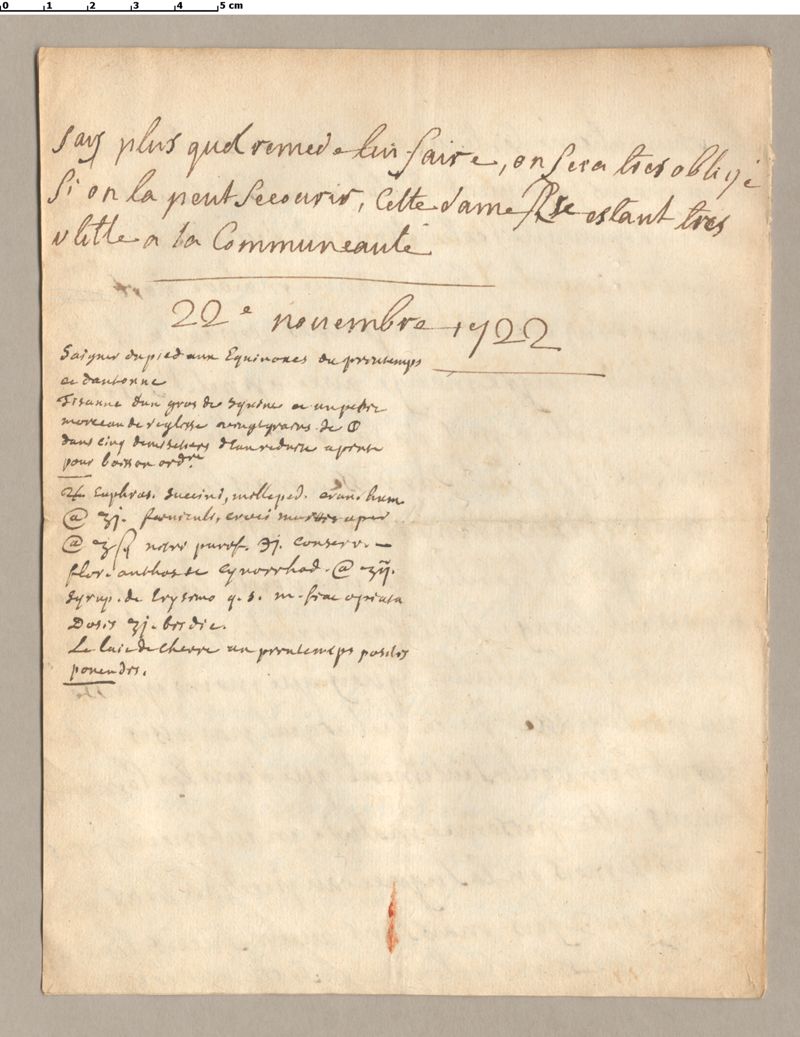 0 1 2 3 4 5 cm
say plus quel remede luy faire, on sera tres obligé
si on la peut secourir, cette dame estant tres
utille a la Communeauté
22e novembre 1722
Saigner du pied aux Equinoxes du printemps
et dautonne
Tisanne dun gros de squine et un petit
morceau de reglisse vingt grains de
dans cinq demisetiers deau reduite a pinte
pour boisson ordre
♃ Euphras. succini, milleped. cran. hum
@ ʒj. foeniculi, croci martis aper
@ ʒß nitri purif. ℈j. conserv.
flor. anthos et cynorrhod. @ ʒij.
syrup. de Erysimo q. s. m. fiat opiata
Dosis ʒj. bis die.
Le laict de chevre au printemps positis
ponendis.